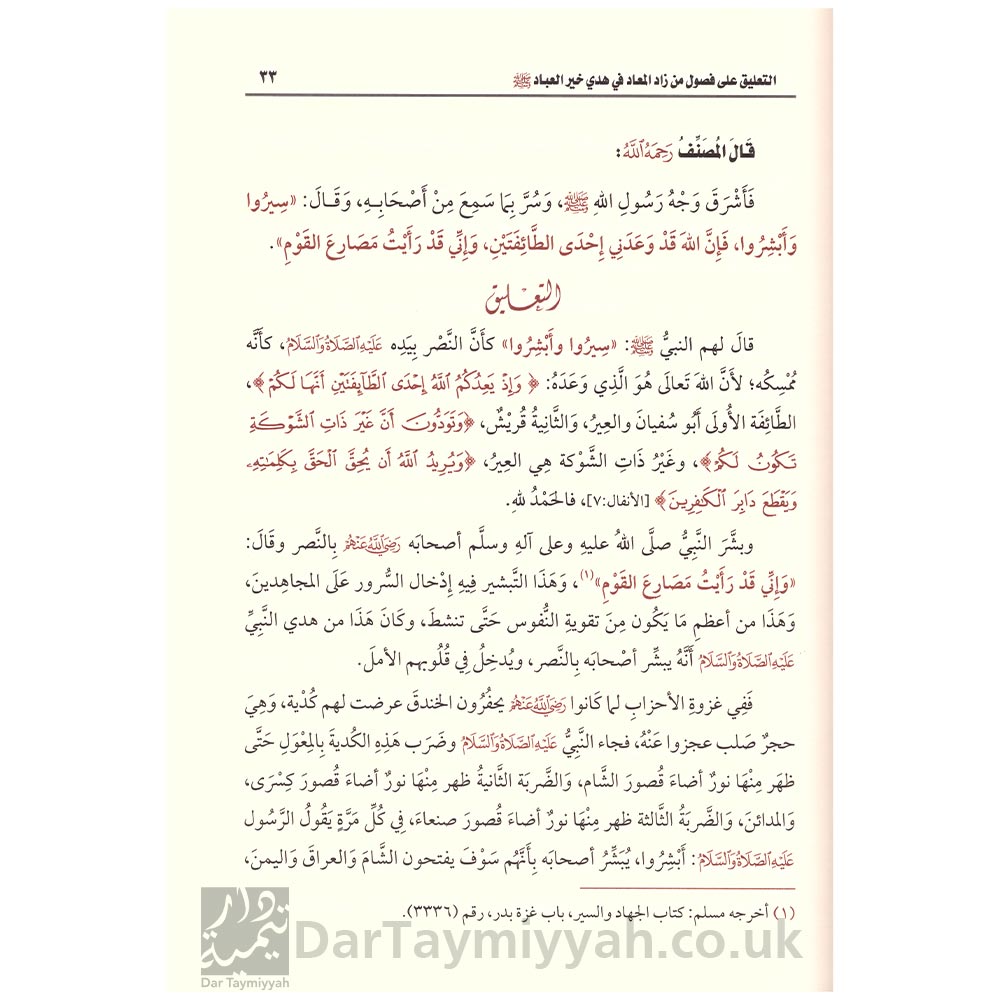 التعليق على فصول من زاد المعاد في هدي خير العباد ﷺ ٣٣
قَالَ المُصَنِّفُ رَحِمَهُ ٱللَّهُ:
فَأَشْرَقَ وَجْهُ رَسُولِ اللهِ ﷺ، وَسُرَّ بِمَا سَمِعَ مِنْ أَصْحَابِهِ، وَقَالَ: «سِيرُوا
وَأَبْشِرُوا، فَإِنَّ اللهَ قَدْ وَعَدَنِي إِحْدَى الطَّائِفَتَيْنِ، وَإِنِّي قَدْ رَأَيْتُ مَصَارِعَ القَوْمِ».
التعليق
قالَ لهم النبيُّ ﷺ: «سِيرُوا وأَبْشِرُوا» كأَنَّ النَّصْر بِيَدِه عَلَيْهِ ٱلصَّلَاةُ وَٱلسَّلَامُ، كأنَّه
مُمْسِكُه؛ لأنَّ اللهَ تَعالَى هُوَ الَّذِي وَعَدَهُ: ﴿وَإِذْ يَعِدُكُمُ ٱللَّهُ إِحْدَى ٱلطَّآئِفَتَيْنِ أَنَّهَا لَكُمْ﴾،
الطَّائِفَة الأُولَى أَبُو سُفيانَ والعِيرُ، وَالثَّانِيةُ قُرَيْشٌ، ﴿وَتَوَدُّونَ أَنَّ غَيْرَ ذَاتِ ٱلشَّوْكَةِ
تَكُونُ لَكُمْ﴾، وغَيْرُ ذَاتِ الشَّوْكة هِي العِيرُ، ﴿وَيُرِيدُ ٱللَّهُ أَن يُحِقَّ ٱلْحَقَّ بِكَلِمَٰتِهِۦ
وَيَقْطَعَ دَابِرَ ٱلْكَٰفِرِينَ﴾ [الأنفال:٧]، فالحَمْدُ للهِ.
وبشَّرَ النَّبِيُّ صلَّى اللهُ عليهِ وعلى آلهِ وسلَّم أصحابَه رَضِيَ ٱللَّهُ عَنْهُمْ بِالنَّصر وقَالَ:
«وَإِنِّي قَدْ رَأَيْتُ مَصَارِعَ القَوْمِ»(١)، وَهَذَا التَّبشير فِيهِ إِدْخال السُّرور عَلَى المجاهِدينَ،
وَهَذَا من أعظمِ مَا يَكُون مِنَ تقويةِ النُّفوس حَتَّى تنشطَ، وكَانَ هَذَا من هدي النَّبيِّ
عَلَيْهِ ٱلصَّلَاةُ وَٱلسَّلَامُ أنَّهُ يبشِّر أصْحابَه بِالنَّصر، ويُدخِلُ فِي قُلُوبهم الأملَ.
فَفِي غزوةِ الأحزابِ لما كَانوا رَضِيَ ٱللَّهُ عَنْهُمْ يحفُرُون الخندقَ عرضت لهم كُدْية، وَهِيَ
حجرٌ صَلب عجزوا عَنْهُ، فجاء النَّبيُّ عَلَيْهِ ٱلصَّلَاةُ وَٱلسَّلَامُ وضَرَب هَذِهِ الكُديةَ بِالمِعْوَلِ حَتَّى
ظهَر مِنْهَا نورٌ أضاءَ قُصورَ الشَّام، وَالضَّربَة الثَّانيةُ ظهر مِنْهَا نورٌ أضاءَ قُصورَ كِسْرَى،
وَالمدائنَ، وَالضَّربةُ الثَّالثة ظهر مِنْهَا نورٌ أضاءَ قُصورَ صنعاءَ، فِي كُلِّ مَرَّةٍ يَقُولُ الرَّسُول
عَلَيْهِ ٱلصَّلَاةُ وَٱلسَّلَامُ: أَبْشِرُوا، يُبَشِّرُ أصحابَه بأَنَّهُم سَوْفَ يفتحون الشَّامَ وَالعراقَ وَاليمنَ،
(١) أخرجه مسلم: كتاب الجهاد والسير، باب غزة بدر، رقم (٣٣٣٦).
دار تيمية
Dar Taymiyyah
DarTaymiyyah.co.uk